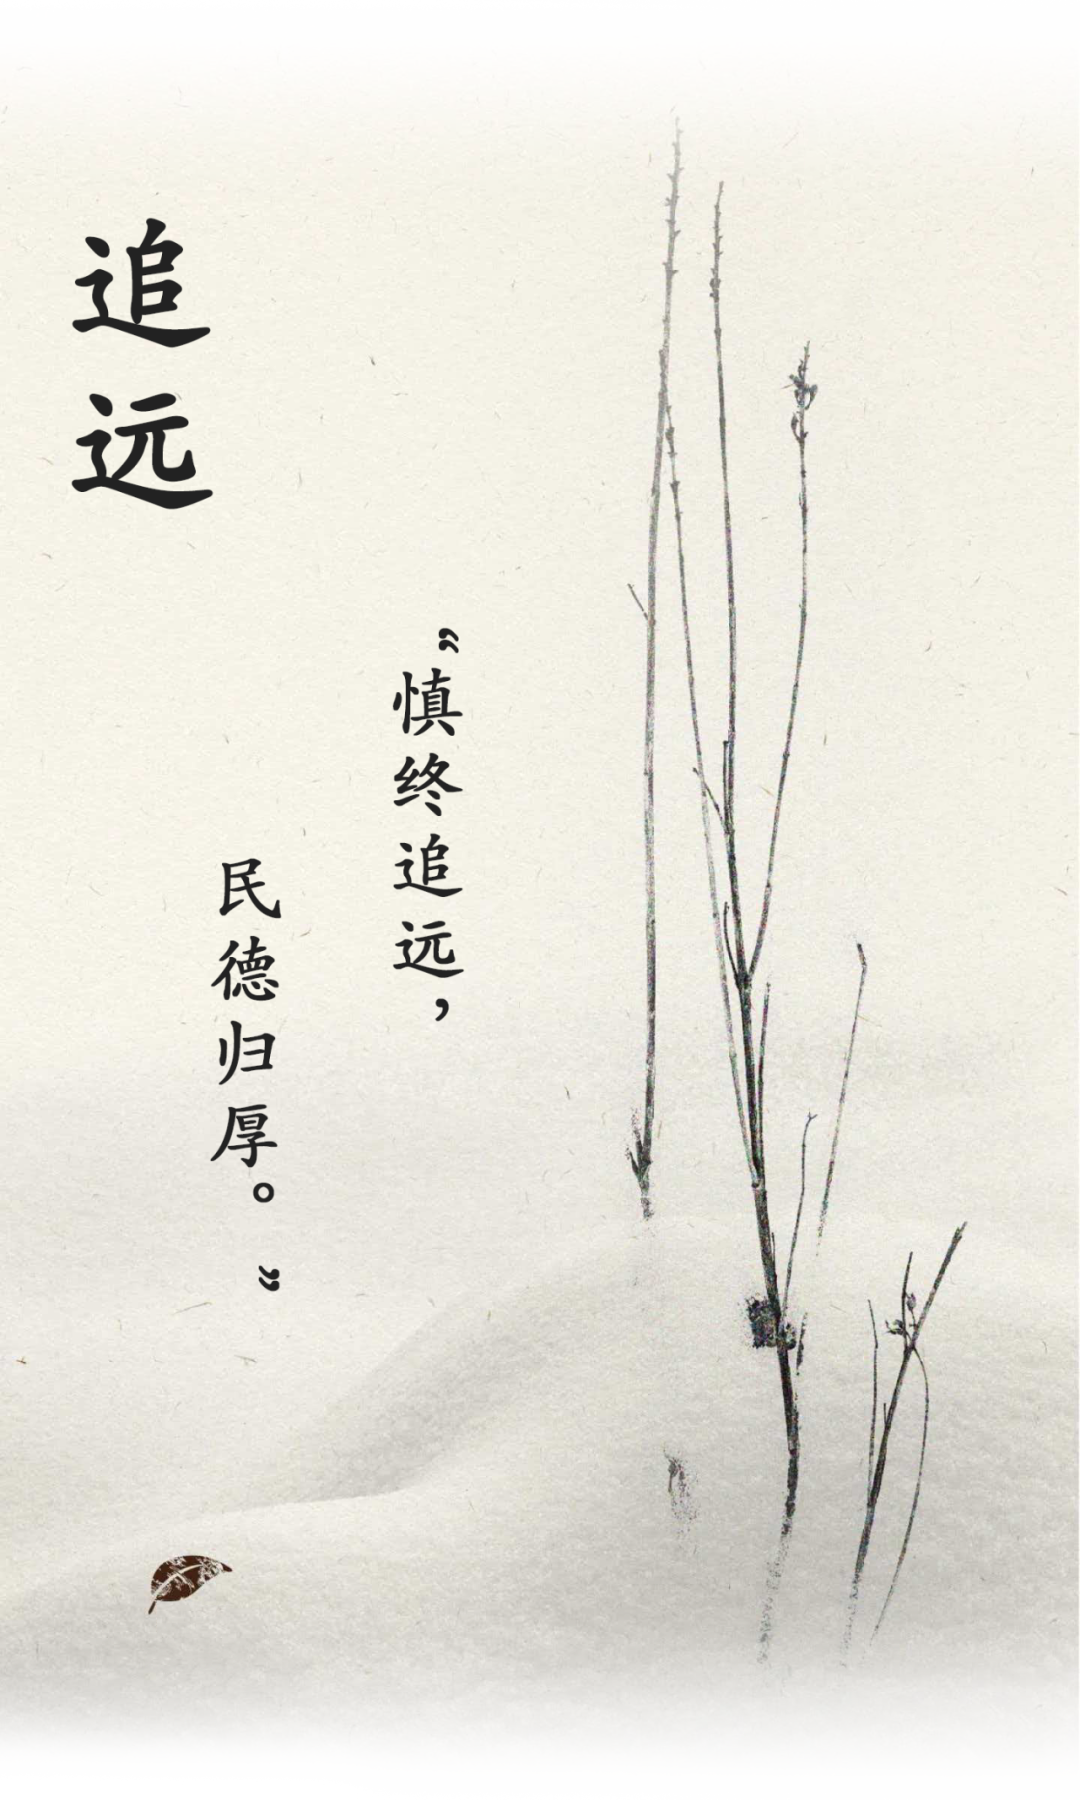 追远
“慎终追远，
民德归厚。”